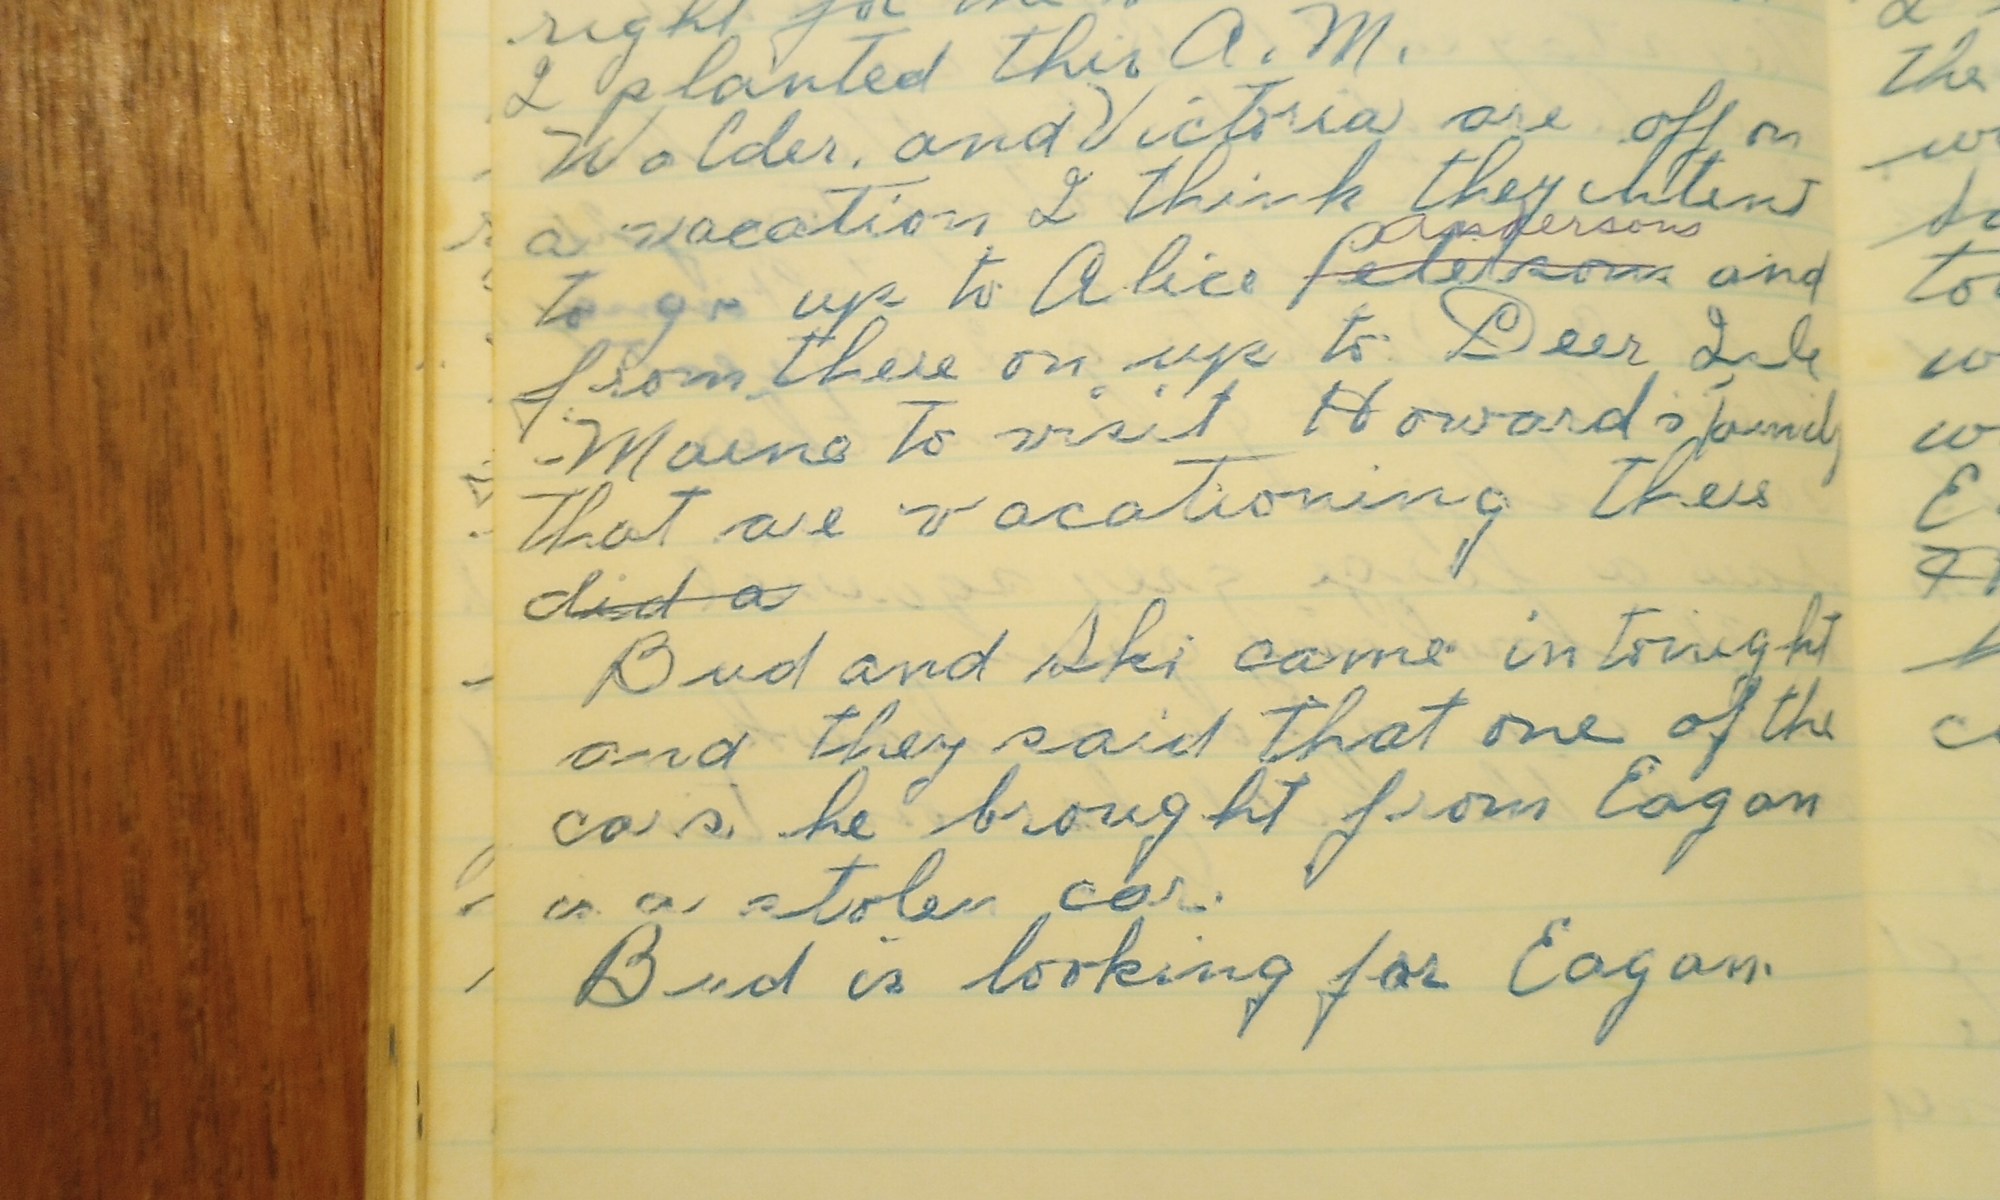 right for the
I planted this A.M.
Wolder. and Victoria are off on
a vacation I think they intend
Andersons
to go up to Alice Petersons and
from there on up to Deer Isle
Maine to visit Howard's family
that are vacationing there
did a
Bud and Ski came in tonight
and they said that one of the
cars he brought from Eagan
is a stolen car.
Bud is looking for Eagan.